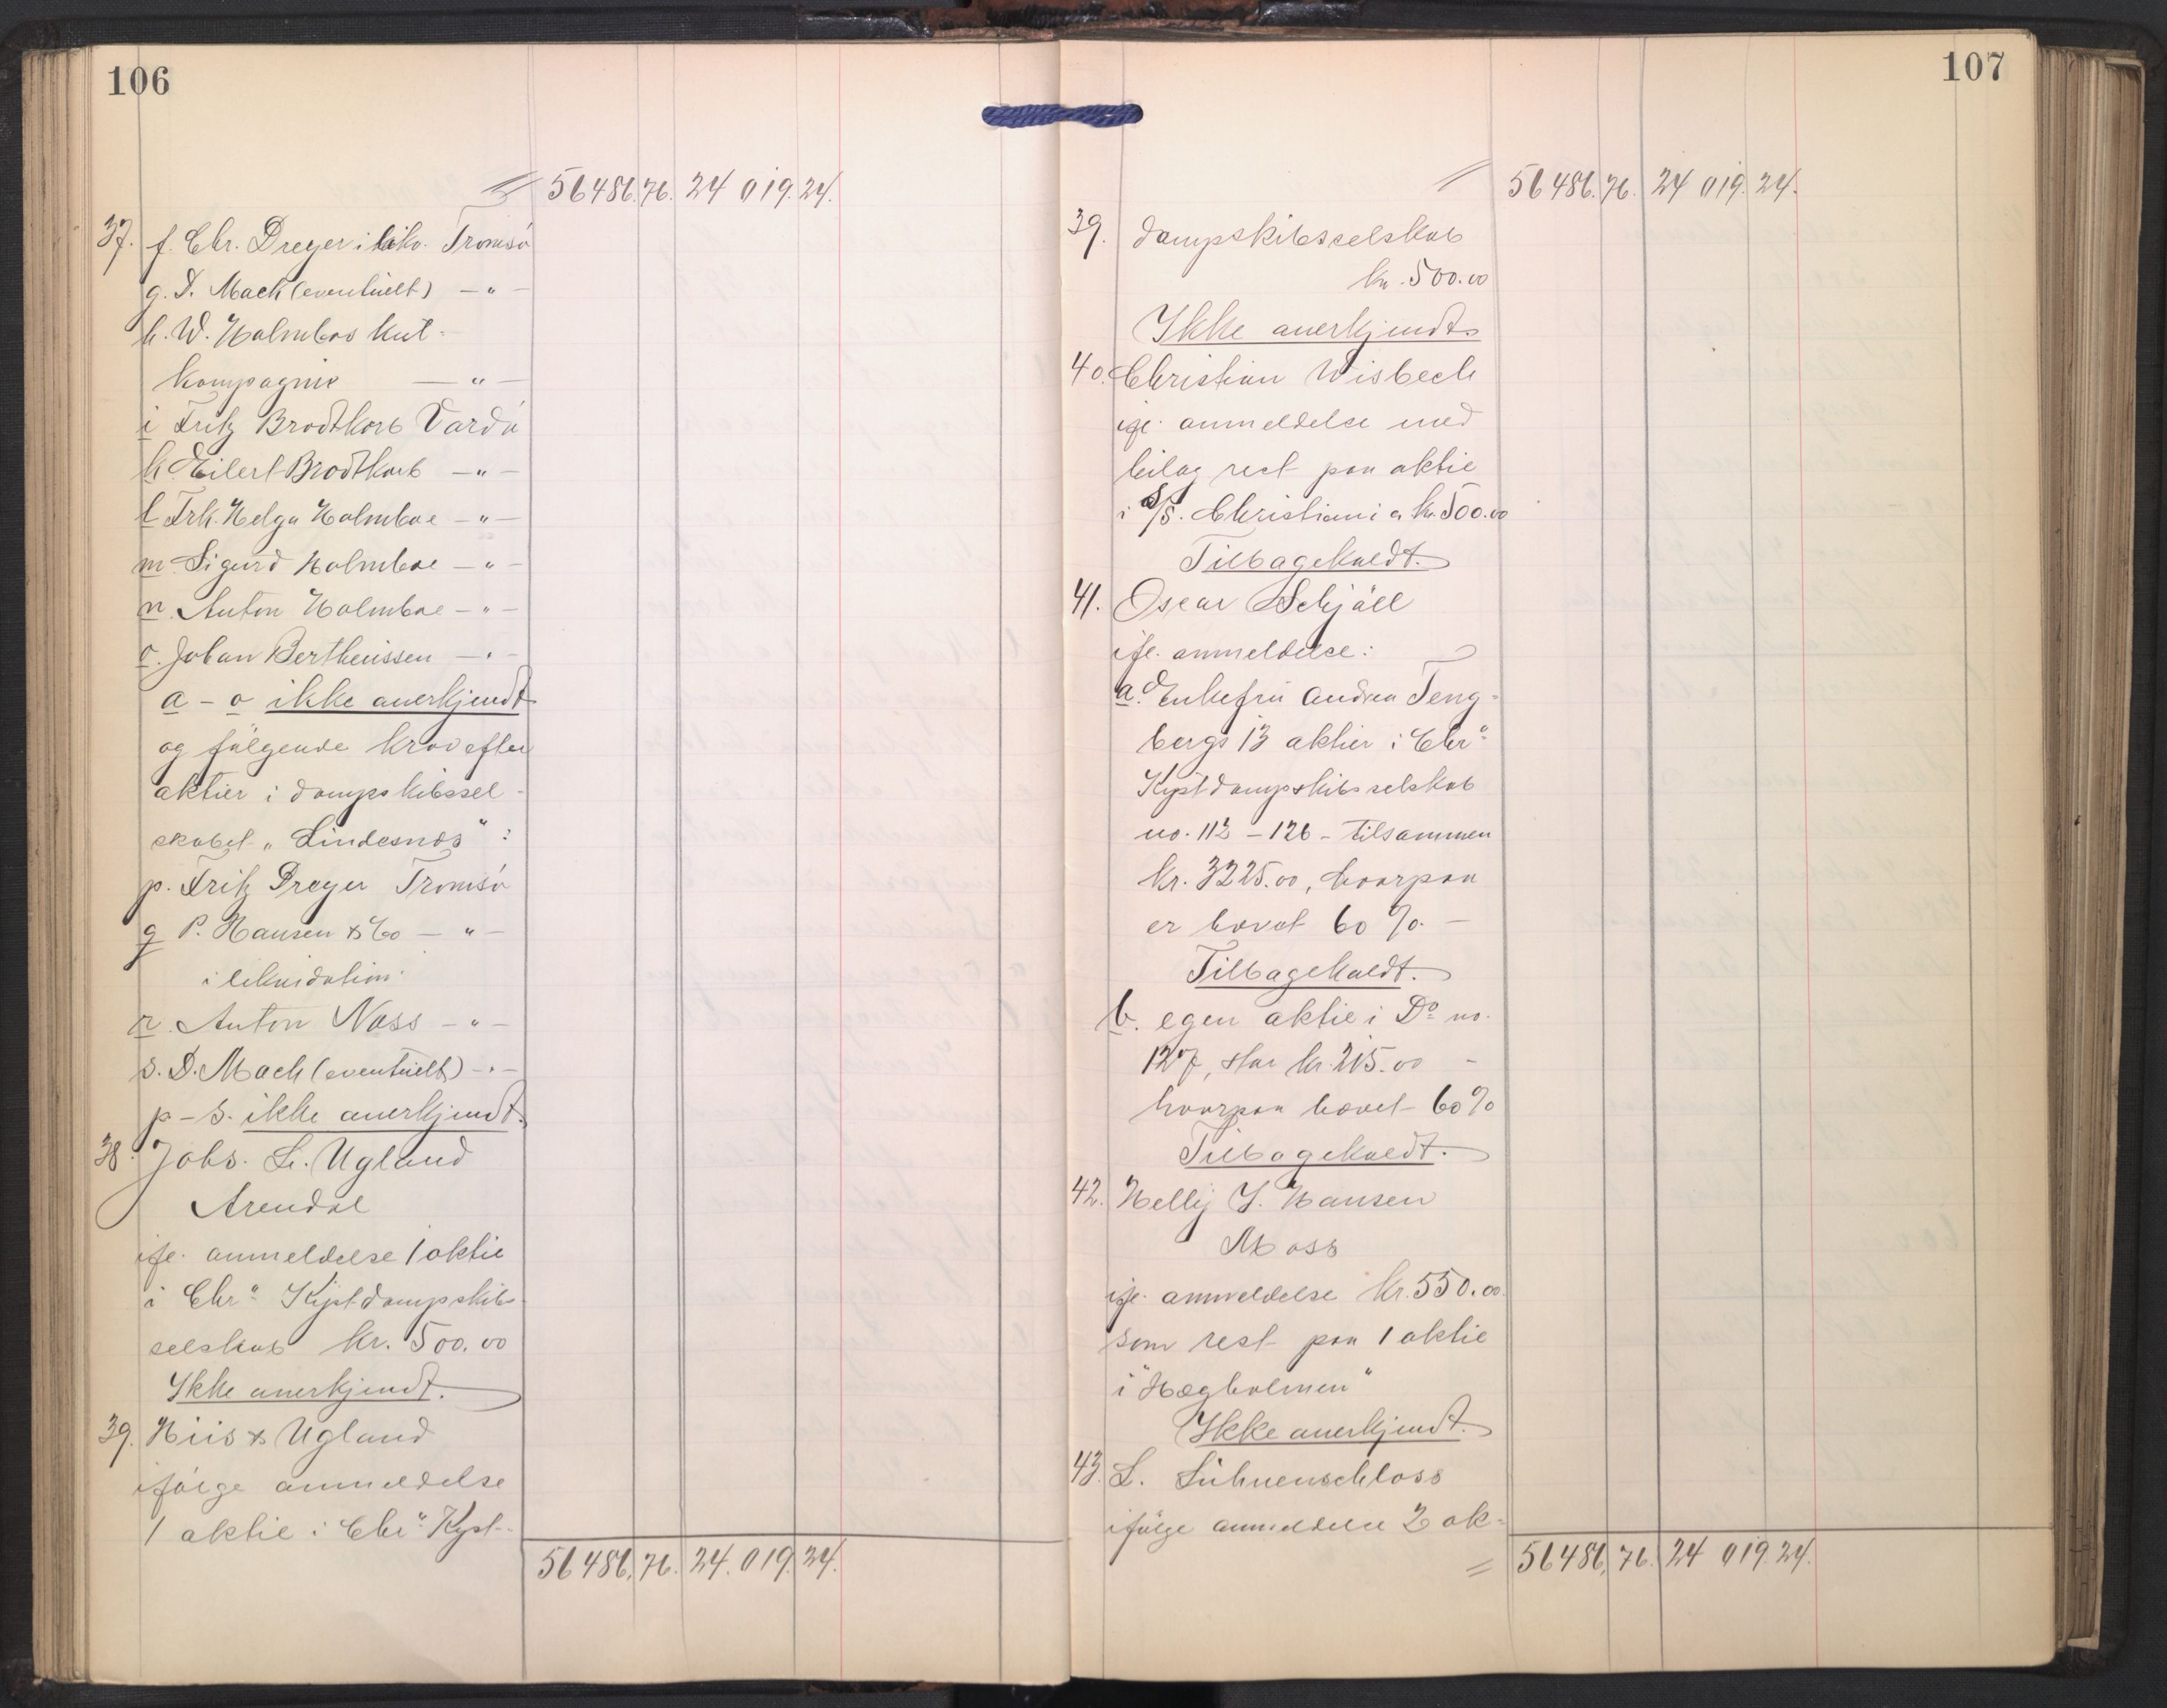 106
56486.76. 24 019.24.
37. f. Chr. Dreyer i likv. Tromsö
g. D. Mack (eventuelt) — " —
h. W. Holmboe kul-
kompagnie — " —
i Fritz Brodtkorb Vardö
k Eilert Brodtkorb — " —
l Frk. Helga Holmboe — " —
m. Sigurd Holmboe — " —
n. Anton Holmboe — " —
o. Johan Bertheussen — " —
a - o ikke anerkjendt
og fölgende krav efter
aktier i dampskibssel-
skabet „Lindesnæs" :
p. Fritz Dreyer Tromsö
q P. Hansen & Co — " —
i likvidation
r. Anton Næss — " —
s. D. Mack (eventuelt) — " —
p - s. ikke anerkjendt.
38. Johs. L. Ugland
Arendal
ifl. anmeldelse 1 aktie
i Chr.a Kystdampskibs-
selskab kr. 500.00
Ikke anerkjendt.
39. Hiis & Ugland
ifölge anmeldelse
1 aktie i Chr.a Kyst-
56486.76. 24.019.24.
107
56486.76. 24 019.24.
39. dampskibsselskab
kr. 500.00
Ikke anerkjendt.
40. Christian Wisbech
ifl. anmeldelse med
bilag rest paa aktie
i S/S. Christiania kr. 500.00
Tilbagekaldt.
41. Oscar Schjäll
ifl. anmeldelse:
a. Enkefru Andrea Teng-
bergs 13 aktier i Chr.a
Kystdampskibsselskab
no. 112 - 126 - tilsammen
kr. 3225.00, hvorpaa
er hævet 60 %. -
Tilbagekaldt.
b. egen aktie i Do no.
127, stor kr. 215.00 -
hvorpaa hævet 60%
Tilbagekaldt.
42. Helly J. Hansen
Moss
ifl. anmeldelse kr. 550.00
som rest paa 1 aktie
i "Hægholmen"
Ikke anerkjendt.
43. L. Lühnenschloss
ifölge anmeldelse 2 ak-
56486.76. 24 019.24.